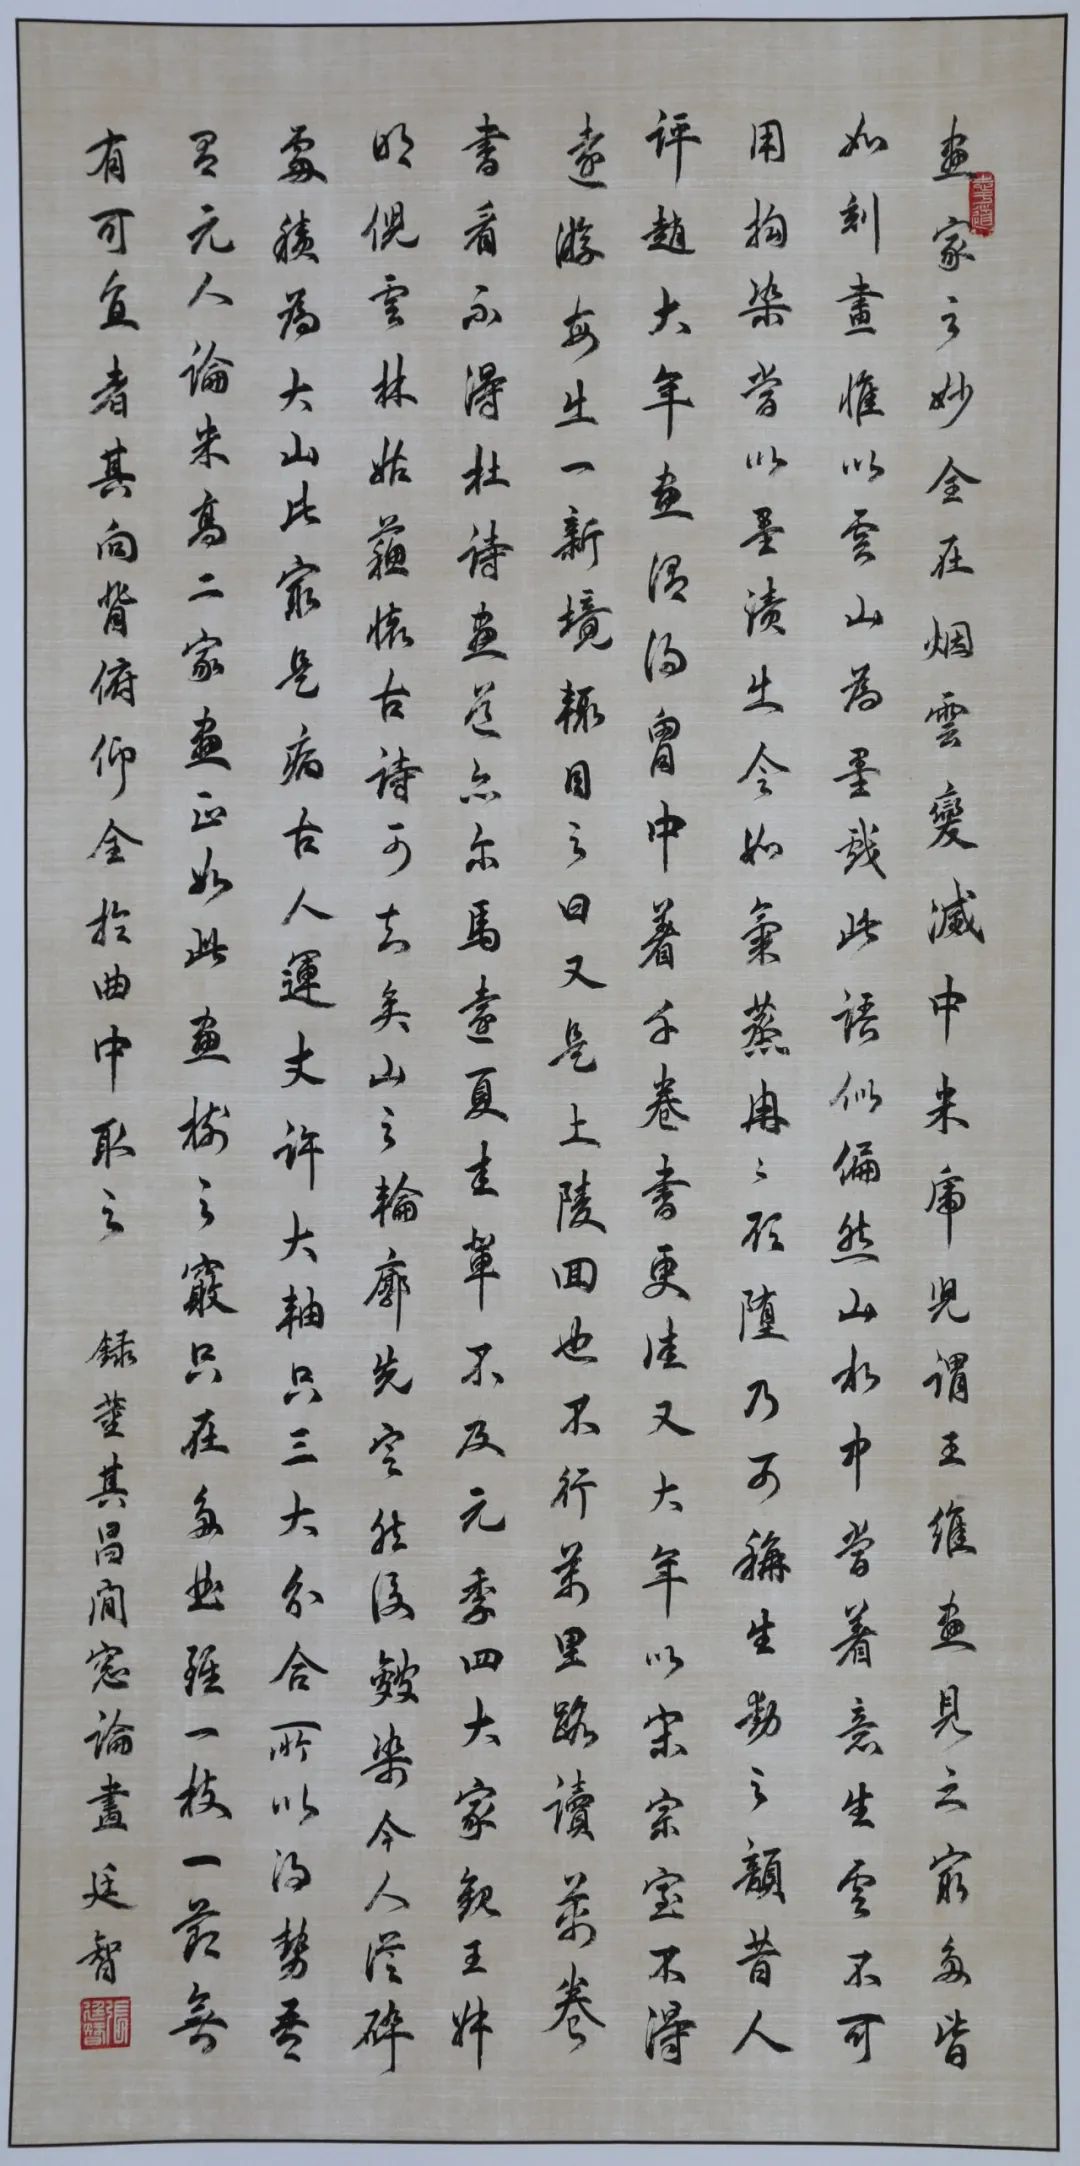 画家之妙全在烟雲變滅中米虎児謂王維画見之最多皆
如刻畫惟以雲山為墨戲此語似偏然山水中當着意生雲不可
用拘染當以墨漬出令如氣蒸冉冉欲堕乃可稱生動之韻昔人
評趙大年画謂得胷中著千卷書更佳又大年以宋宗室不得
遠游每生一新境輒目之曰又是上陵回也不行萬里路讀萬卷
書看不得杜詩画道亦尔馬遠夏圭輩不及元季四大家觀王叔
明倪雲林姑蘇懷古詩可知矣山之輪廓先定然後皴染今人從碎
處積為大山此最是病古人運丈許大軸只三大分合所以得勢吾
見元人論米高二家画正如此画樹之竅只在多曲雖一枝一節無
有可直者其向背俯仰全於曲中取之 録董其昌閒窓論畫 廷智
張廷智